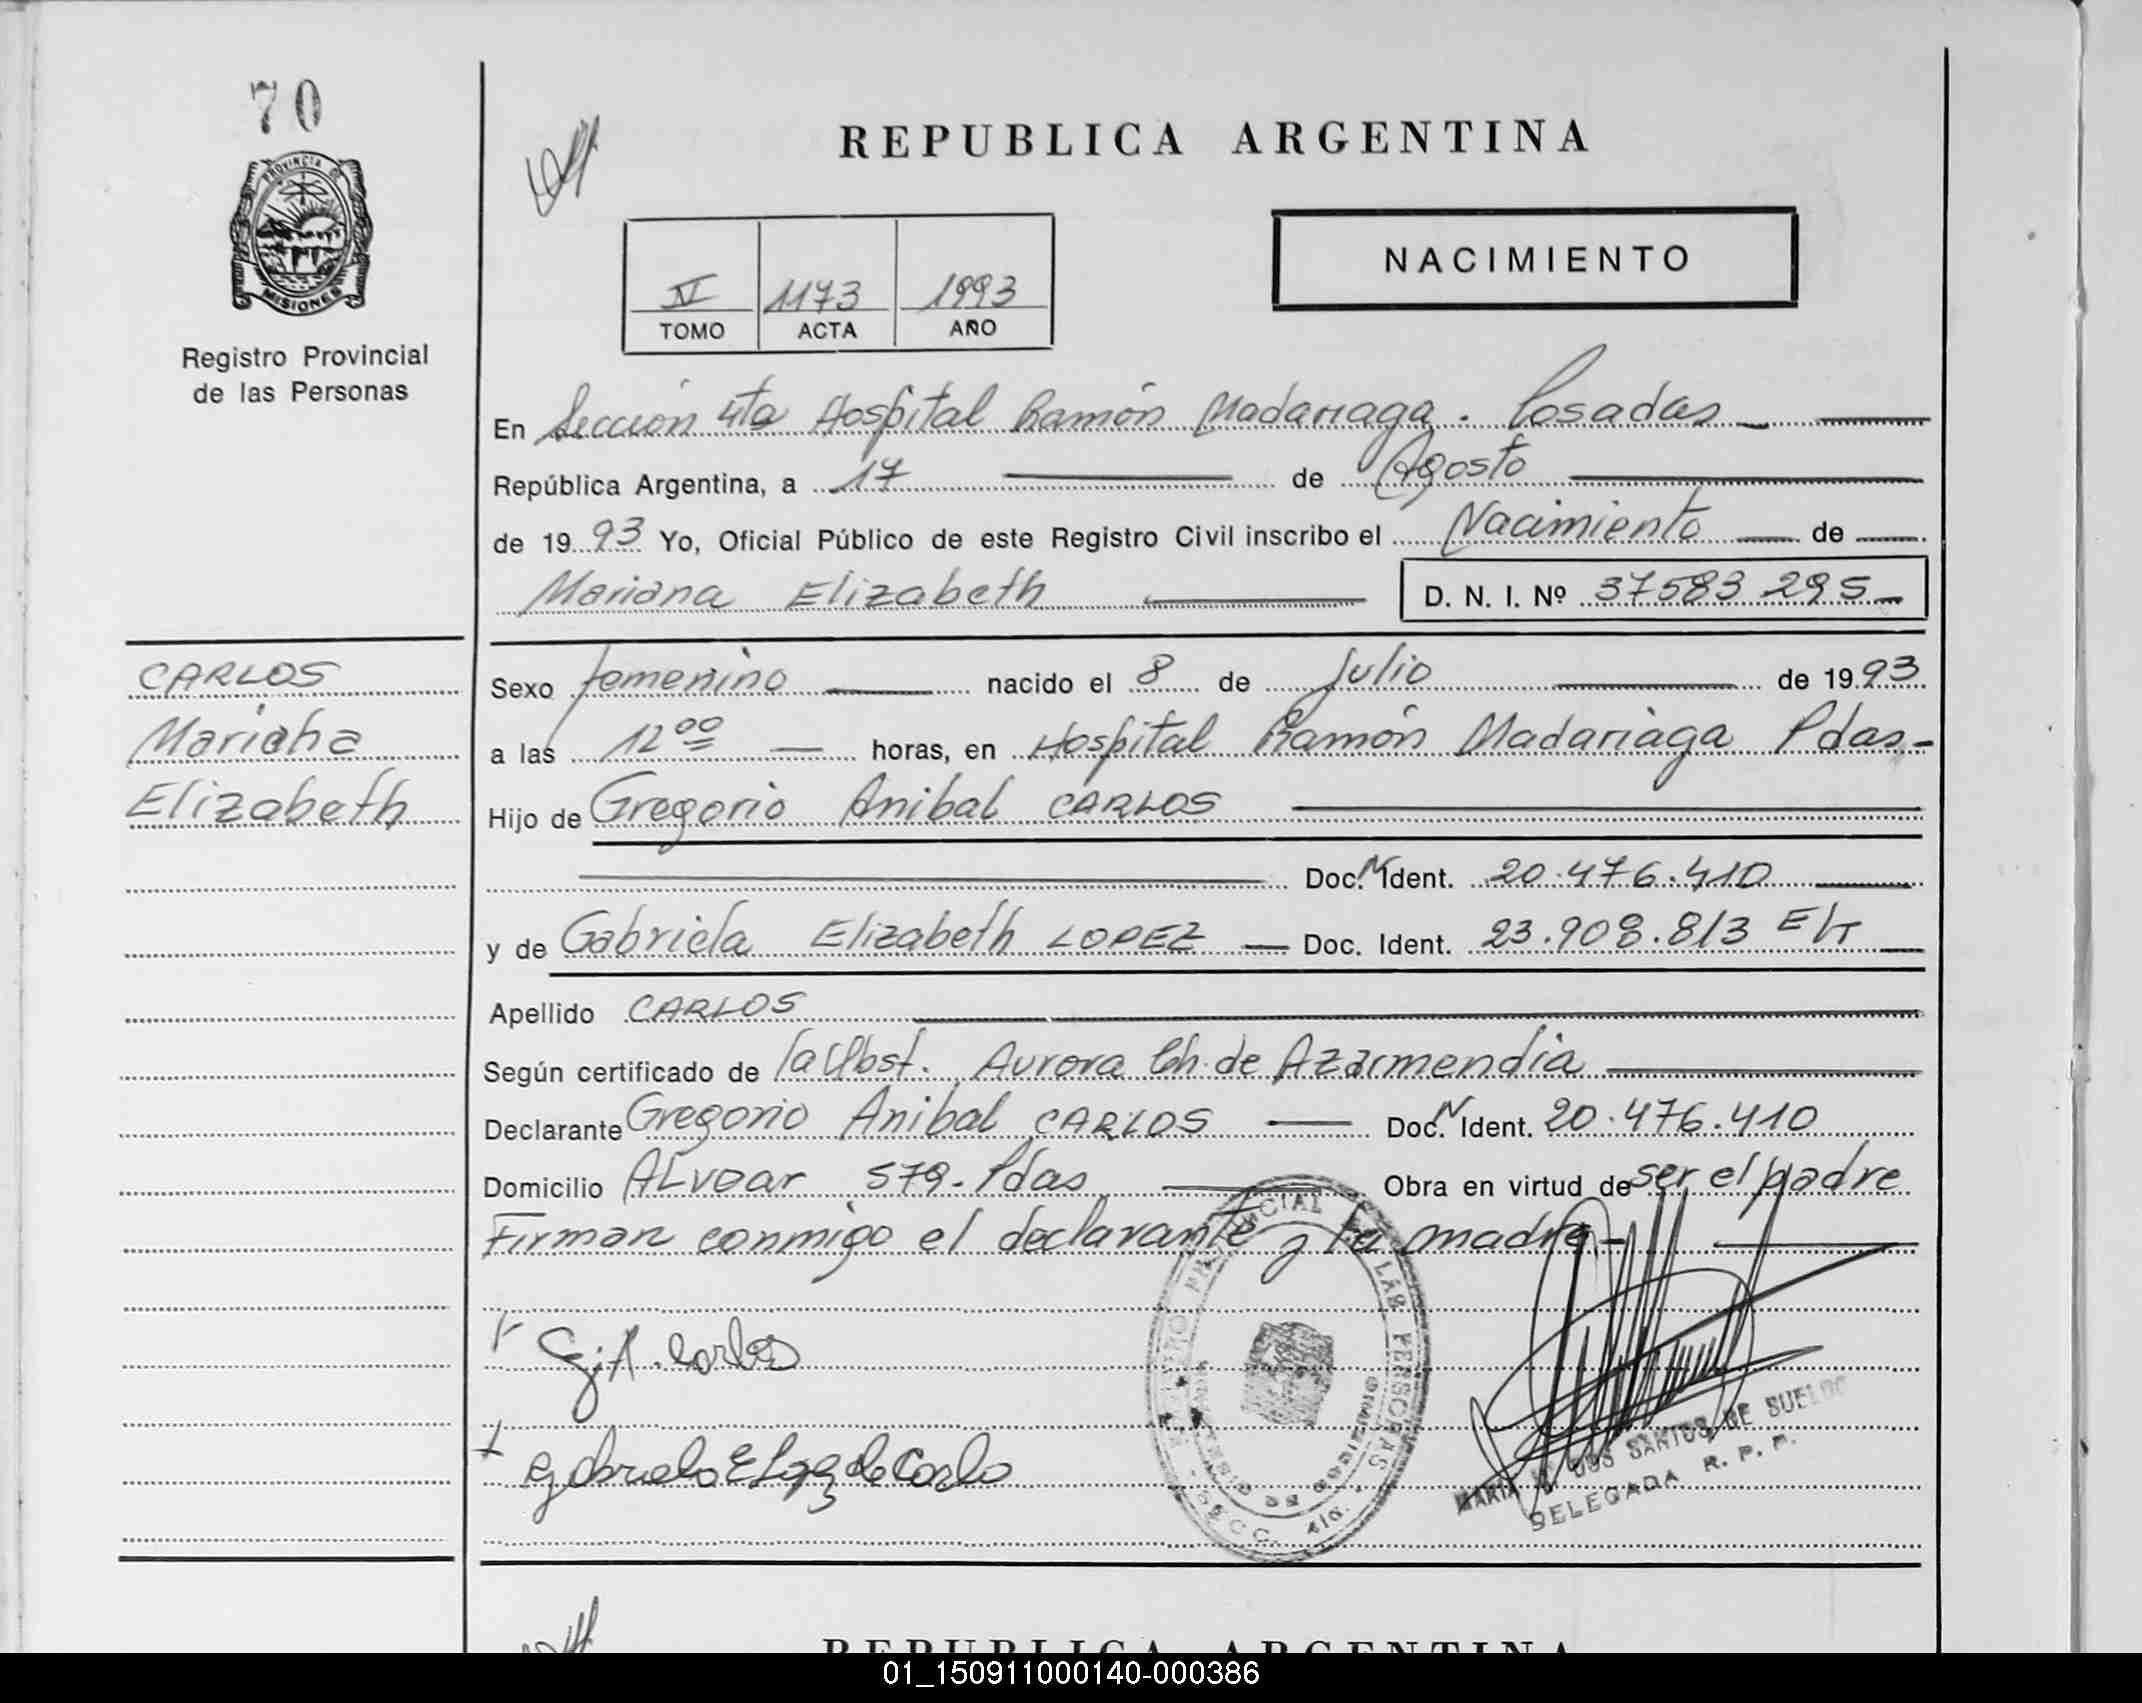 70
REPUBLICA ARGENTINA
PROVINCIA DE
MISIONES
Registro Provincial
de las Personas
IV 1173 1993
TOMO ACTA AÑO
NACIMIENTO
En Sección 4ta Hospital Ramón Madariaga. Posadas
República Argentina, a 17 de Agosto
de 1993 Yo, Oficial Público de este Registro Civil inscribo el Nacimiento de
Mariana Elizabeth D. N. I. Nº 37583295
CARLOS
Mariana
Elizabeth
Sexo femenino nacido el 8 de Julio de 1993
a las 12 00 horas, en Hospital Ramón Madariaga Pdas-
Hijo de Gregorio Anibal CARLOS
Doc. N Ident. 20.476.410
y de Gabriela Elizabeth LOPEZ Doc. Ident. 23.908.813 E/T
Apellido CARLOS
Según certificado de la Obst. Aurora Ch. de Azarmendia
Declarante Gregorio Anibal CARLOS Doc. N Ident. 20.476.410
Domicilio ALvear 579. Pdas Obra en virtud de ser el padre
Firman conmigo el declarante y la madre
G. A. Carlos
Gabriela E Lopez de Carlo
LAS PERSONAS
MARIA DOS SANTOS DE SUELDO
DELEGADA R. P. P.
REPUBLICA ARGENTINA
01_150911000140-000386